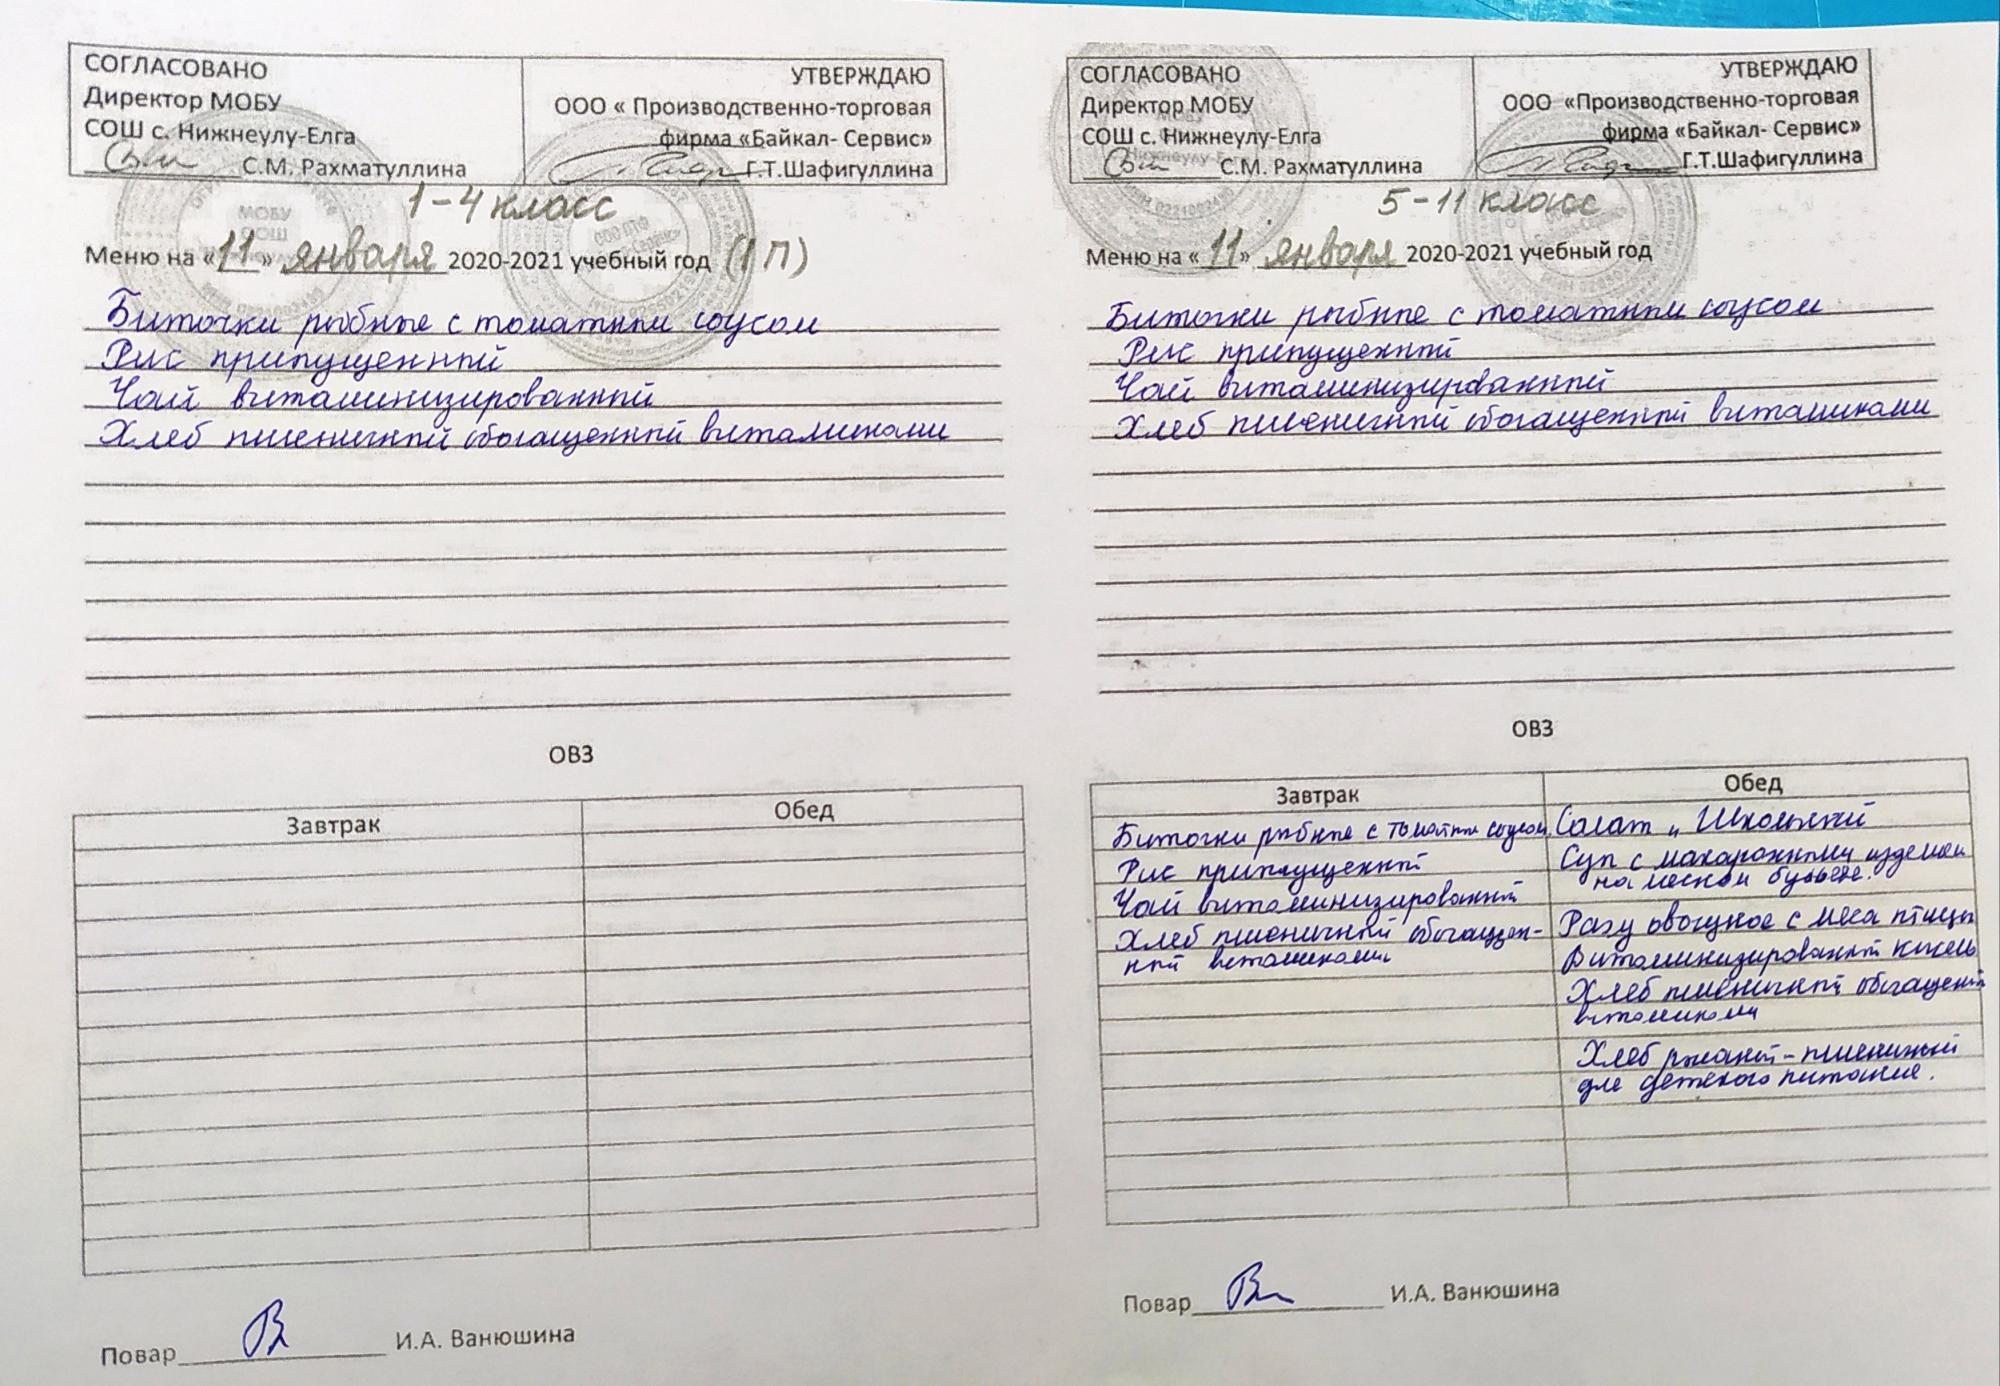 СОГЛАСОВАНО
Директор МОБУ
СОШ с. Нижнеулу-Елга
С.М. Рахматуллина
УТВЕРЖДАЮ
ООО « Производственно-торговая
фирма «Байкал- Сервис»
Г.Т.Шафигуллина
1-4 класс
Меню на «11» января 2020-2021 учебный год (1 П)
Биточки рыбные с томатным соусом
Рис припущенный
Чай витаминизированный
Хлеб пшеничный обогащенный витаминами
ОВЗ
Завтрак Обед
Повар И.А. Ванюшина
СОГЛАСОВАНО
Директор МОБУ
СОШ с. Нижнеулу-Елга
С.М. Рахматуллина
УТВЕРЖДАЮ
ООО «Производственно-торговая
фирма «Байкал- Сервис»
Г.Т.Шафигуллина
5-11 класс
Меню на «11» января 2020-2021 учебный год
Биточки рыбные с томатным соусом
Рис припущенный
Чай витаминизированный
Хлеб пшеничный обогащенный витаминами
ОВЗ
Завтрак
Биточки рыбные с томатным соусом
Рис припущенный
Чай витаминизированный
Хлеб пшеничный обогащен-
ный витаминами
Обед
Салат „ Школьный
Суп с макаронными изделием
на мясном бульоне.
Рагу овощное с мяса птицы
Витаминизированный кисель
Хлеб пшеничный обогащенный
витаминами
Хлеб ржаной-пшеничный
для детского питание.
Повар И.А. Ванюшина